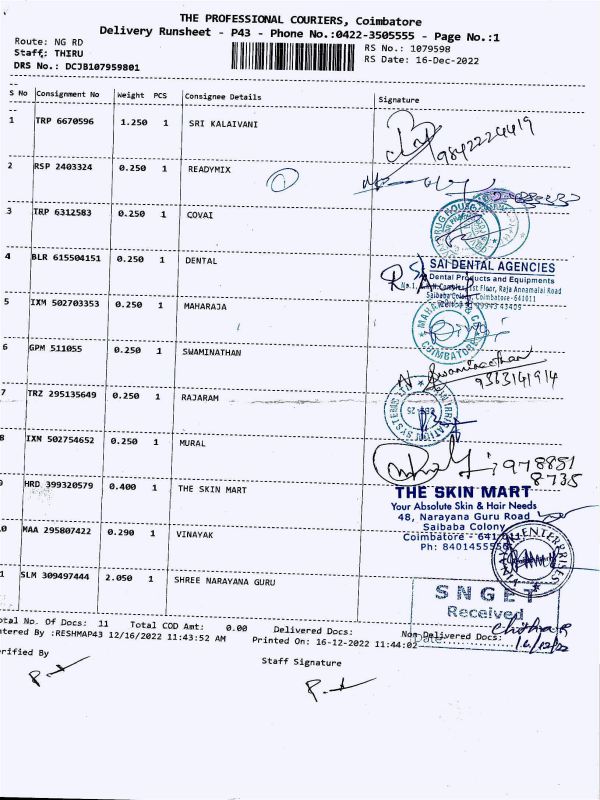 THE PROFESSIONAL COURIERS, Coimbatore
Delivery Runsheet - P43 - Phone No.:0422-3505555 - Page No.:1
Route: NG RD
Staff: THIRU
DRS No.: DCJB107959801
RS No.: 1079598
RS Date: 16-Dec-2022
S No Consignment No Weight PCS Consignee Details Signature
1 TRP 6670596 1.250 1 SRI KALAIVANI
9842224419
2 RSP 2403324 0.250 1 READYMIX
1
3 TRP 6312583 0.250 1 COVAI
4 BLR 615504151 0.250 1 DENTAL
SAI DENTAL AGENCIES
Dental Products and Equipments
1st Floor, Raja Annamalai Road
Saibaba Colony, Coimbatore-641011
5 IXM 502703353 0.250 1 MAHARAJA
COIMBATORE
6 GPM 511055 0.250 1 SWAMINATHAN
Swaminathan
9363141914
7 TRZ 295135649 0.250 1 RAJARAM
8 IXM 502754652 0.250 1 MURAL
978851
8735
9 HRD 399320579 0.400 1 THE SKIN MART
THE SKIN MART
Your Absolute Skin & Hair Needs
48, Narayana Guru Road
Saibaba Colony
Coimbatore - 641 011
Ph: 8401455556
0 MAA 295807422 0.290 1 VINAYAK
ENTERPRISES
1 SLM 309497444 2.050 1 SHREE NARAYANA GURU
SNGET
Received
Date:
Chithra R
16/12/22
otal No. Of Docs: 11 Total COD Amt: 0.00 Delivered Docs: Non Delivered Docs:
ntered By :RESHMAP43 12/16/2022 11:43:52 AM Printed On: 16-12-2022 11:44:02
erified By
Staff Signature